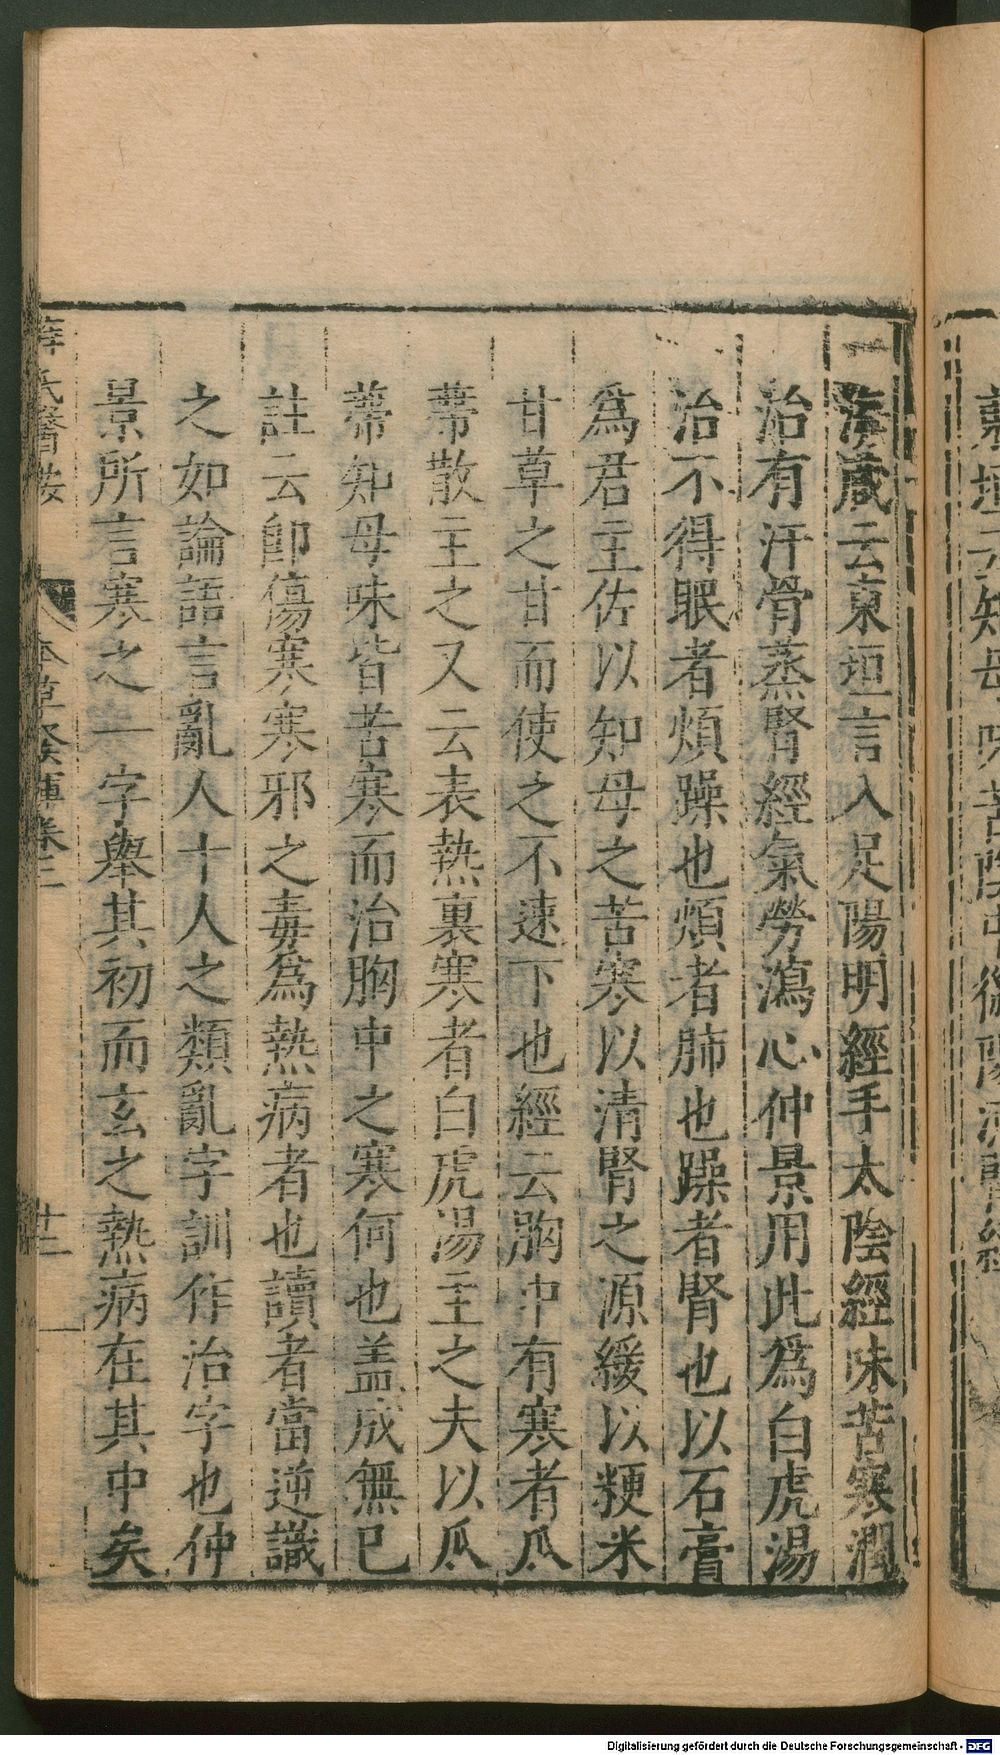 東垣云知母味苦陰中微陽液腎經
海藏云東垣言入足陽明經手太陰經味苦寒潤
治有汗骨蒸腎經氣勞瀉心仲景用此為白虎湯
治不得眠者煩躁也煩者肺也躁者腎也以石膏
為君主佐以知母之苦寒以清腎之源緩以粳米
甘草之甘而使之不速下也經云胸中有寒者瓜
蒂散主之又云表熱裏寒者白虎湯主之夫以瓜
蒂知母味皆苦寒而治胸中之寒何也盖成無已
註云即傷寒寒邪之毒為熱病者也讀者當逆識
之如論語言亂人十人之類亂字訓作治字也仲
景所言寒之一字舉其初而玄之熱病在其中矣
薛氏醫按 本草發揮卷二 廿二
Digitalisierung gefördert durch die Deutsche Forschungsgemeinschaft - DFG